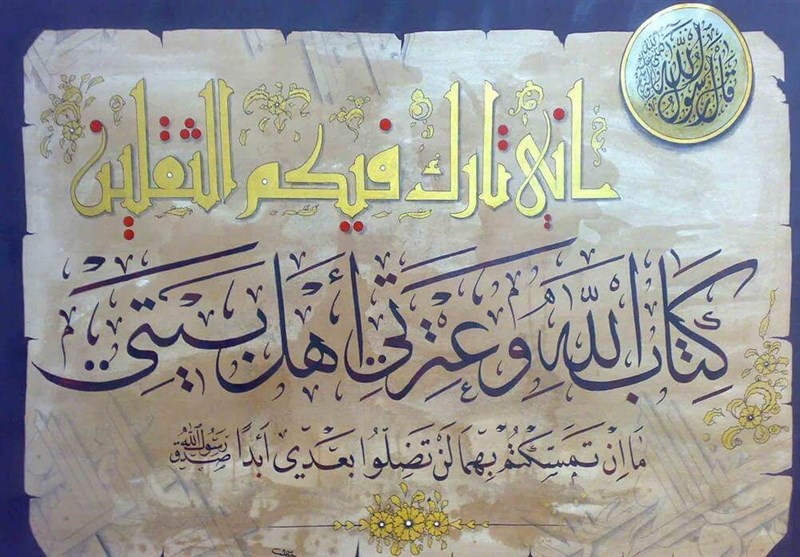 قال رسول الله
إني تارك فيكم الثقلين
كِتَابَ اللّٰهِ وَعِتْرَتِي أَهْلَ بَيْتِي
مَا اِنْ تَمَسَّكْتُمْ بِهِمَا لَنْ تَضِلُّوا بَعْدِي أَبَدًا صَدَقَ رَسُولُ اللهِ